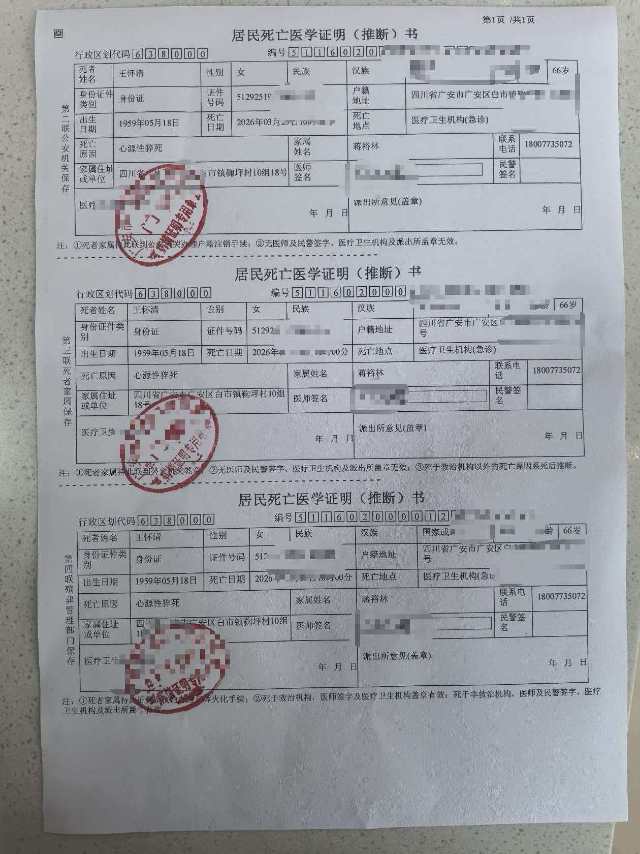 第1页 /共1页
居民死亡医学证明（推断）书
行政区划代码 638000 编号 5116020
死者姓名 王怀清 性别 女 民族 汉族 66岁
身份证件类别 身份证 证件号码 51292519 户籍地址 四川省广安市广安区白市镇
出生日期 1959年05月18日 死亡日期 2026年03月 死亡地点 医疗卫生机构(急诊)
死亡原因 心源性猝死 家属姓名 蒋裕林 联系电话 18007735072
家属住址或单位 四川省 市镇 坪村10组18号 医师签名 民警签名
医疗 年 月 日 派出所意见(盖章) 年 月 日
第二联公安机关保存
注：①死者家属持此联到公安机关办理户籍注销手续；②无医师及民警签字、医疗卫生机构及派出所盖章无效。
居民死亡医学证明（推断）书
行政区划代码 638000 编号 511602000
死者姓名 王怀清 性别 女 民族 汉族 66岁
身份证件类别 身份证 证件号码 51292 户籍地址 四川省广安市广安区 号
出生日期 1959年05月18日 死亡日期 2026年 00分 死亡地点 医疗卫生机构(急诊)
死亡原因 心源性猝死 家属姓名 蒋裕林 联系电话 18007735072
家属住址或单位 四川省广安市广安区白市镇 坪村10组18号 医师签名 民警签名
医疗卫 年 月 日 派出所意见(盖章) 年 月 日
第三联死者家属保存
注：①死者家属持此联到公安机关 ②无医师及民警签字、医疗卫生机构及派出所盖章无效；③死于救治机构以外的死亡原因系死后推断。
居民死亡医学证明（推断）书
行政区划代码 638000 编号 511602000012
死者姓名 王怀清 性别 女 民族 汉族 国家或 年龄 66岁
身份证件类别 身份证 证件号码 51 户籍地址 四川省广安市广安区白 号
出生日期 1959年05月18日 死亡日期 2026 00分 死亡地点 医疗卫生机构(急诊)
死亡原因 心源性猝死 家属姓名 蒋裕林 联系电话 18007735072
家属住址或单位 四 市广安区白市镇 坪村10组18号 医师签名 民警签名
医疗卫生 年 月 日 派出所意见(盖章) 年 月 日
第四联殡葬管理部门保存
注：①死者家属持 火化手续；②死于救治机构，医师签字及医疗卫生机构盖章有效；死于非救治机构，医师及民警签字、医疗卫生机构及派出所盖章有效。